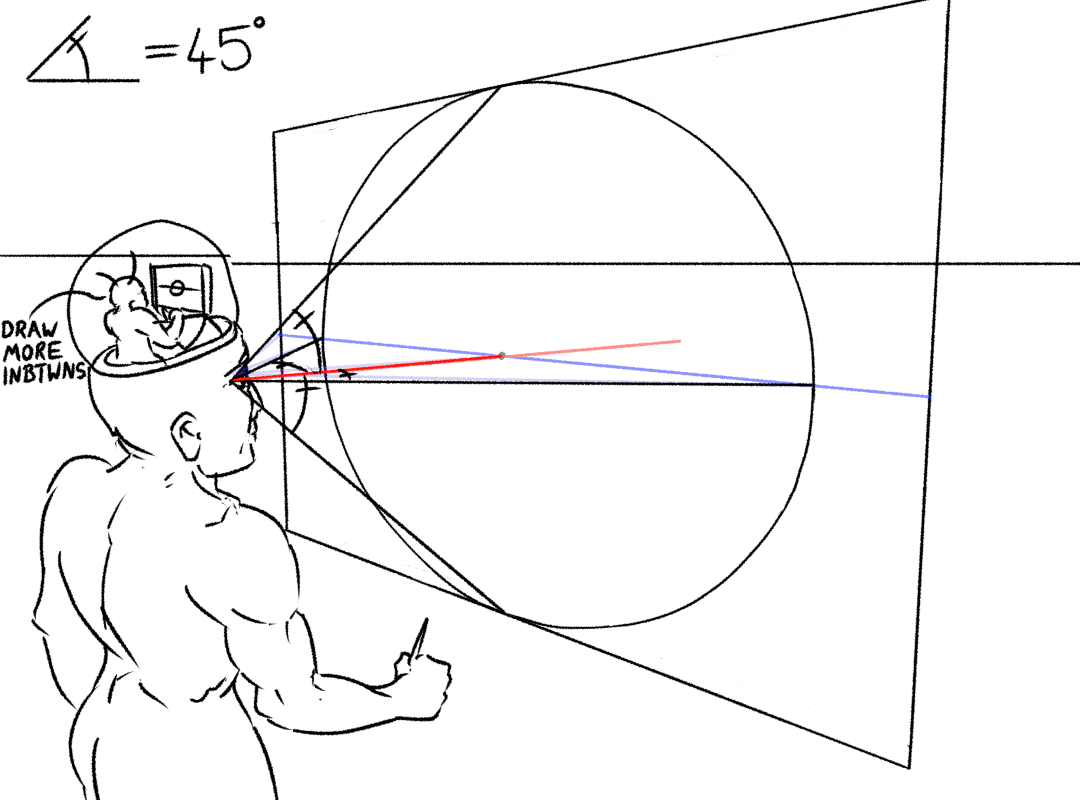 = 45°
DRAW
MORE
INBTWNS